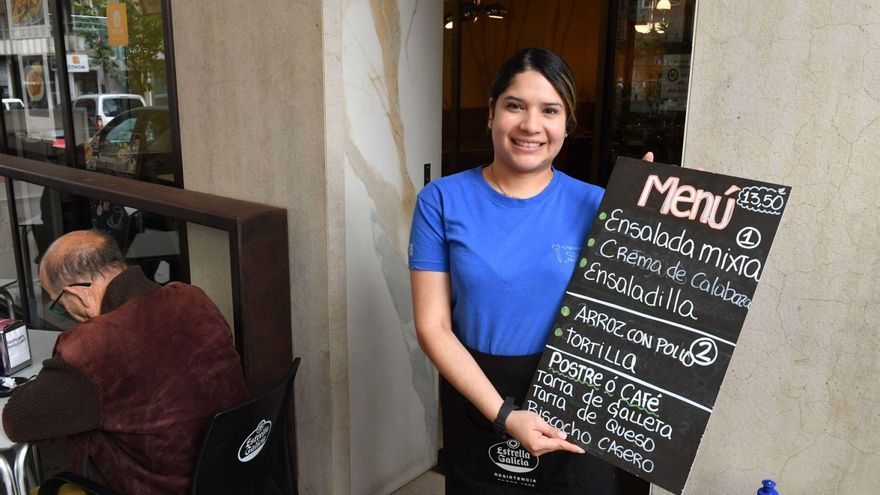 Menú 13,50
1
Ensalada mixta
Crema de Calabaza
Ensaladilla
2
ARROZ CON POLLO
TORTILLA
POSTRE Ó CAFÉ
Tarta de Galleta
Tarta de Queso
Biscocho CASERO
Estrella
Galicia
RESISTENCIA
Estrella
Galicia
RESISTENCIA